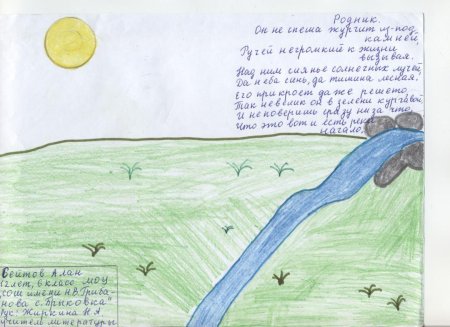 Родник.
Он не спеша журчит из-под
камней,
Ручей негромкий к жизни
вызывая.
Над ним сиянье солнечных лучей,
Да неба синь, да тишина лесная,
Его прикроет даже решето,
Так невелик он в зелени кудрявой,
И не поверишь сразу ни за что,
Что это вот и есть реки
начало.
Сеитов Алан
лет, 6 класс МОУ
сош имени Н.В. Гриба-
нова с. Брыковка"
рук: Жиркина Н.А
учитель литературы